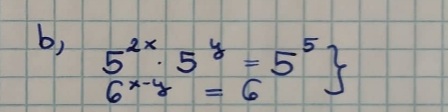 b, 5^{2x} · 5^{y} = 5^{5} }
6^{x-y} = 6